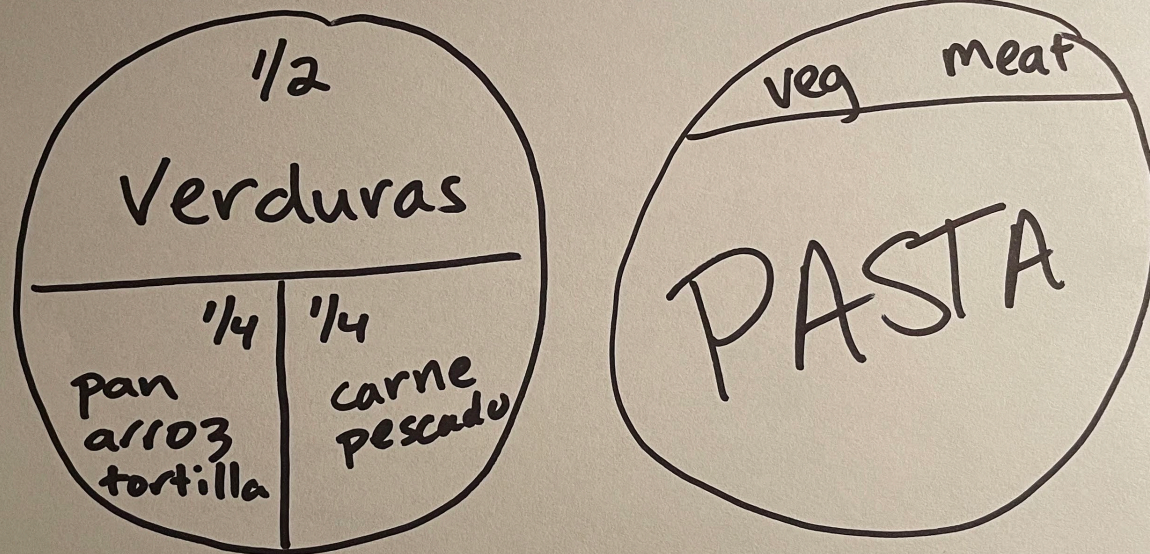 1/2
Verduras
1/4
pan
arroz
tortilla
1/4
carne
pescado
veg meat
PASTA